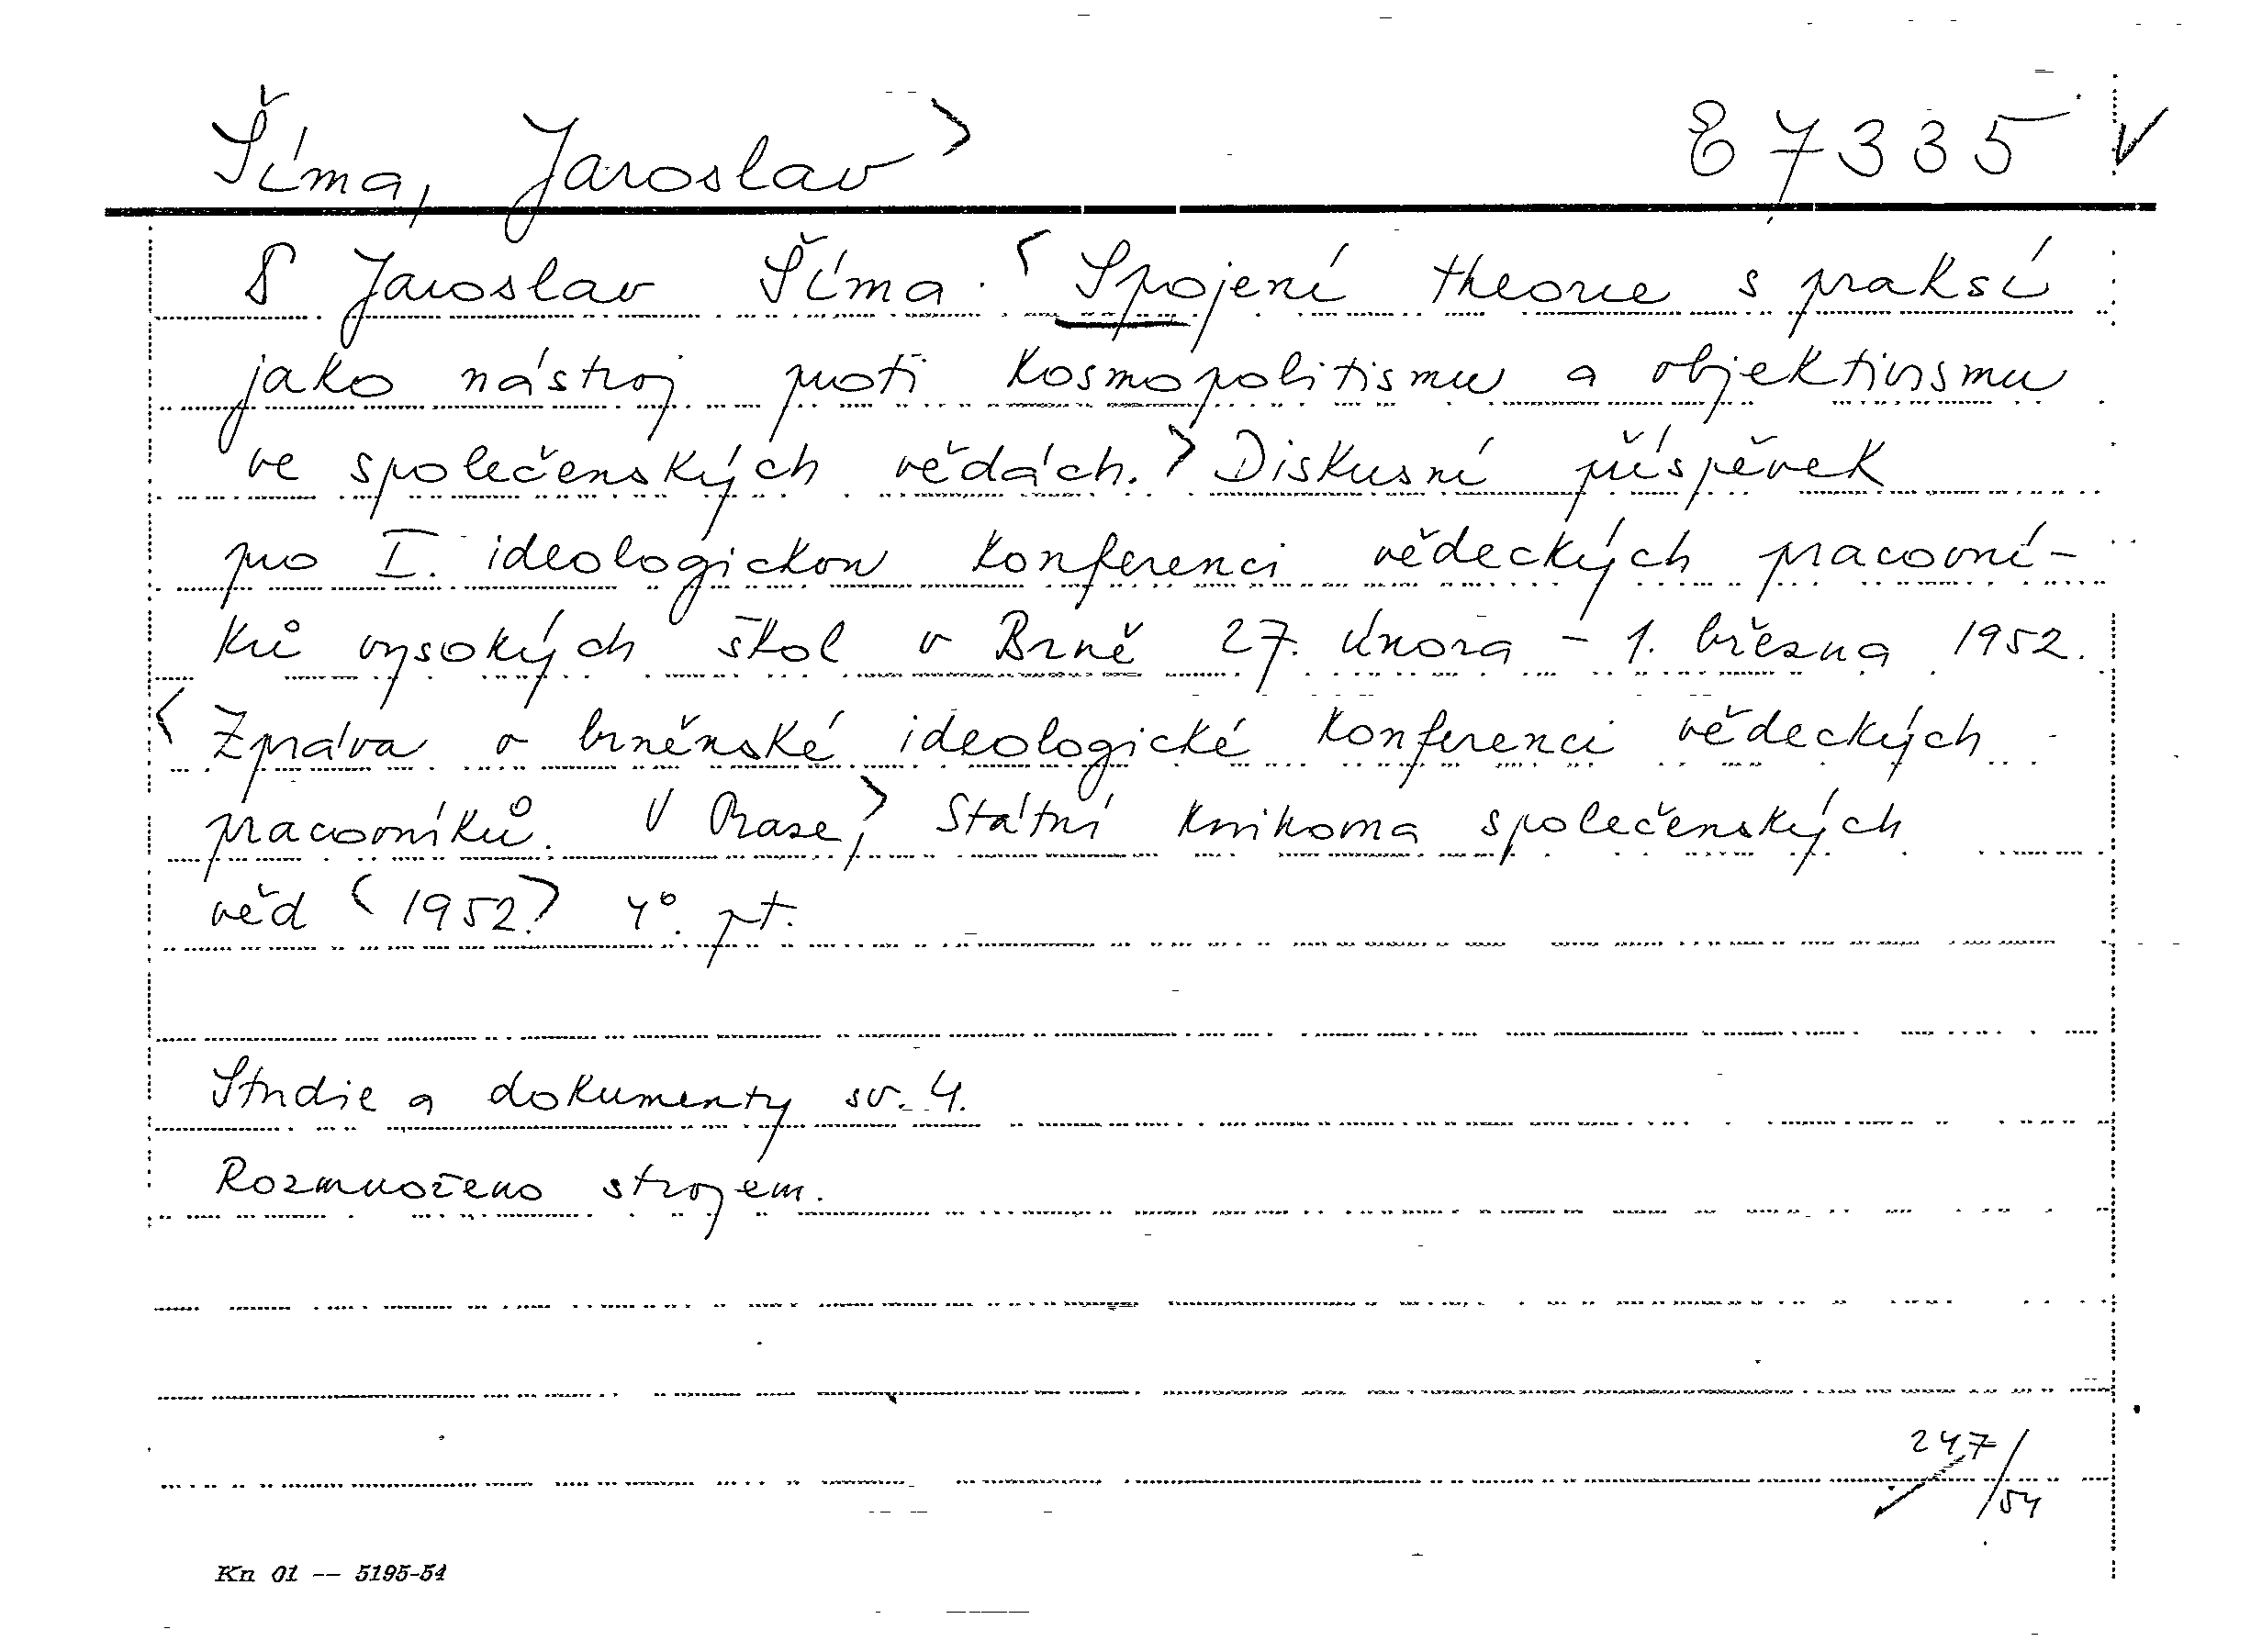 Šíma, Jaroslav > E 7335 V
Jaroslav Šíma. < Spojení theorie s praksí
jako nástroj proti kosmopolitismu a objektivismu
ve společenských vědách. > Diskusní příspěvek
pro I. ideologickou konferenci vědeckých pracovní-
ků vysokých škol v Brně 27. února - 1. března 1952.
< Zpráva o brněnské ideologické konferenci vědeckých
pracovníků. V Praze, > Státní knihovna společenských
věd < 1952. > 4°. pt.
Studie a dokumenty sv. 4.
Rozmnoženo strojem.
247/54
Kn 01 -- 5195-54